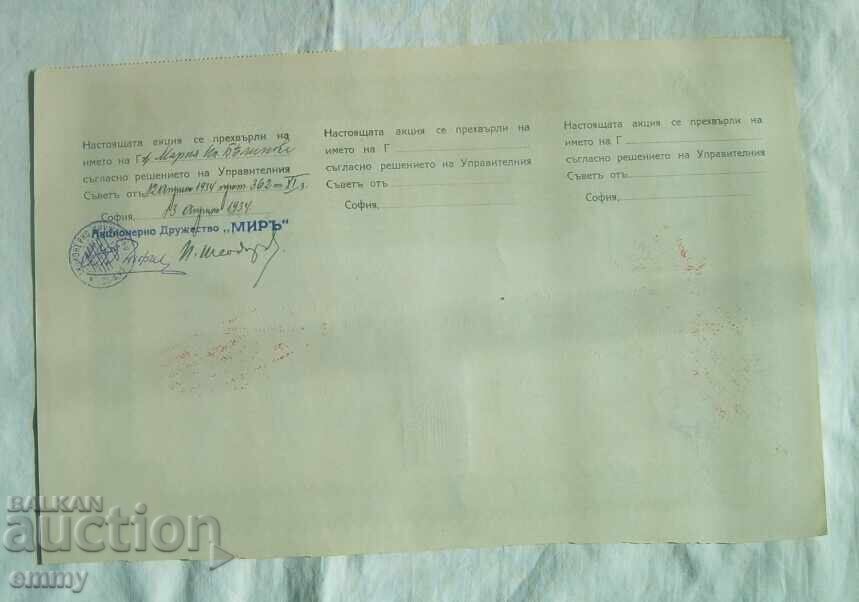 Настоящата акция се прехвърли на
името на Г Мария
съгласно решението на Управителния
Съветъ отъ 12 април 1934 прот 362 т VI
София, 13 април 1934
Акционерно Дружество „МИРЪ“
Настоящата акция се прехвърли на
името на Г
съгласно решението на Управителния
Съветъ отъ
София,
Настоящата акция се прехвърли на
името на Г
съгласно решението на Управителния
Съветъ отъ
София,
BALKAN
auction
emmy